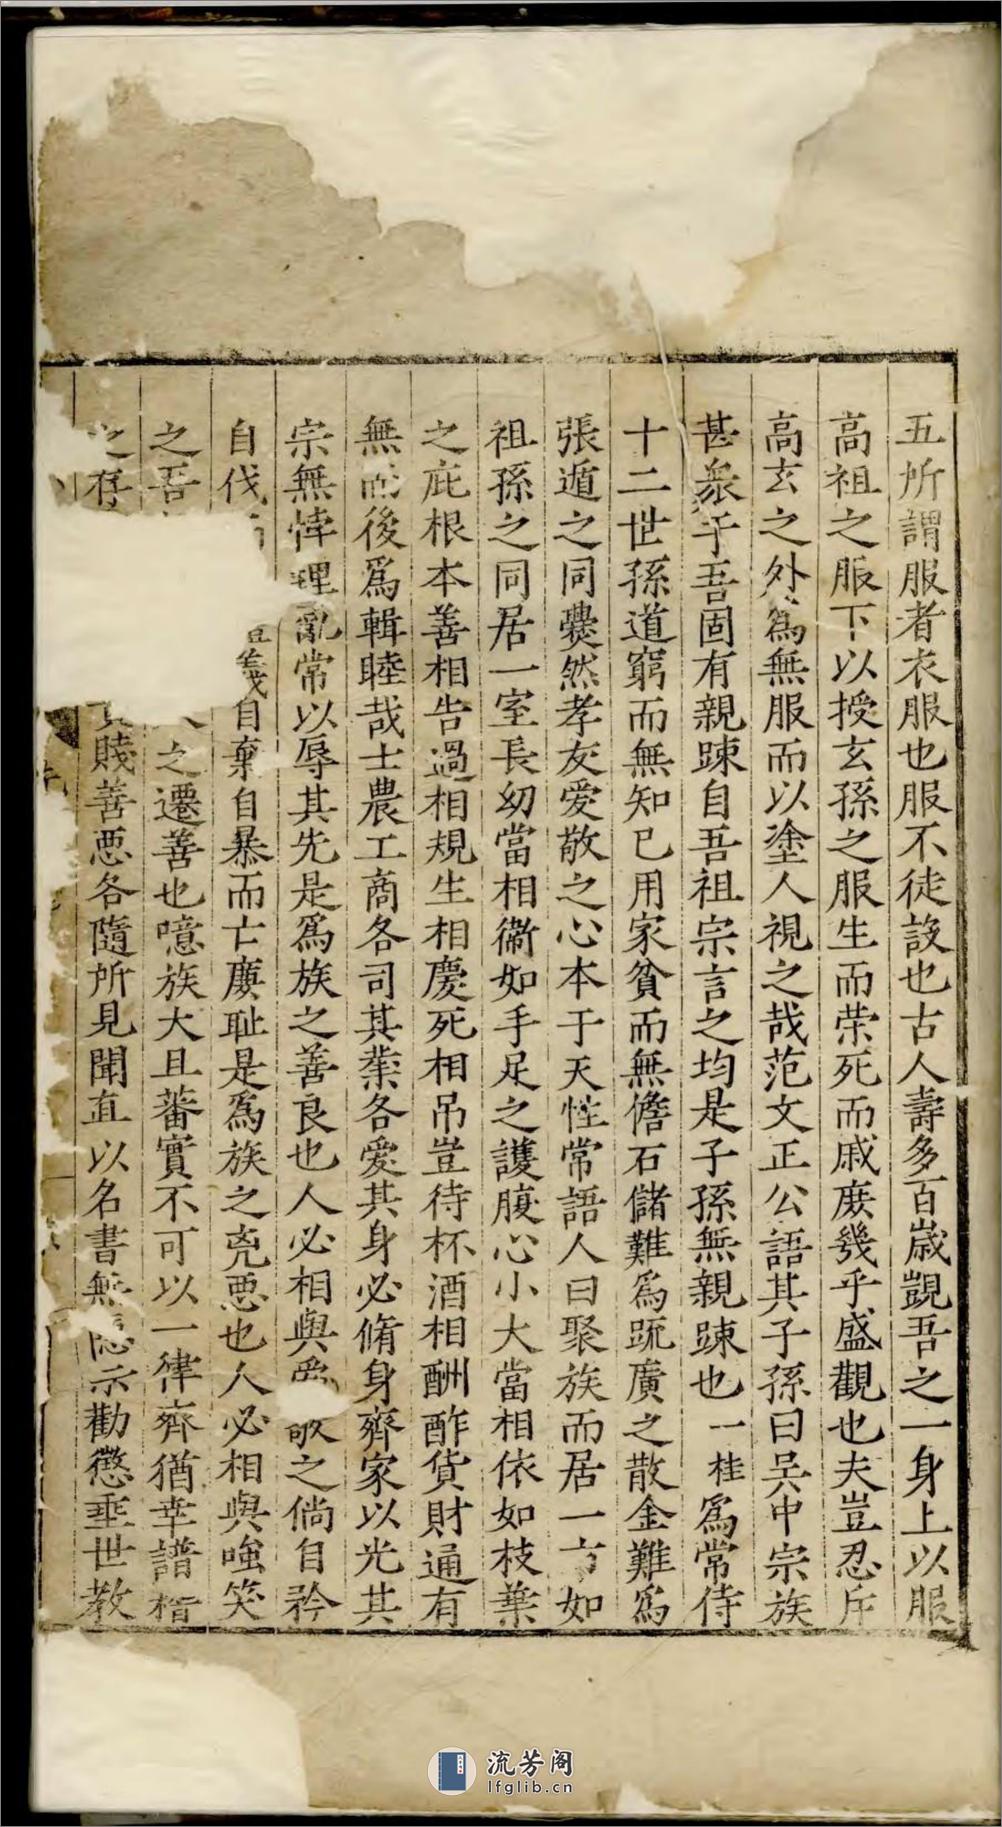 五所謂服者衣服也服不徒設也古人壽多百歲覬吾之一身上以服
高祖之服下以授玄孫之服生而荣死而戚庻幾乎盛觀也夫豈忍斥
高玄之外爲無服而以塗人視之哉范文正公語其子孫曰吴中宗族
甚衆于吾固有親踈自吾祖宗言之均是子孫無親踈也一桂爲常侍
十二世孫道窮而無知已用家貧而無儋石儲難爲䟽廣之散金難爲
張遁之同㸑然孝友愛敬之心本于天性常語人曰聚族而居一方如
祖孫之同居一室長幼當相衞如手足之護腹心小大當相依如枝葉
之庇根本善相告過相規生相慶死相吊豈待杯酒相酬酢貨財通有
無而後爲輯睦哉士農工商各司其業各愛其身必脩身齊家以光其
宗無悖理亂常以辱其先是爲族之善良也人必相與愛敬之倘自矜
自伐 義自棄自暴而亡廉耻是爲族之兇悪也人必相與嗤笑
之吾 之遷善也噫族大且蕃實不可以一律齊猶幸譜楷
之存 賤善悪各隨所見聞直以名書無隱示勸懲垂世教
流芳阁
lfglib.cn